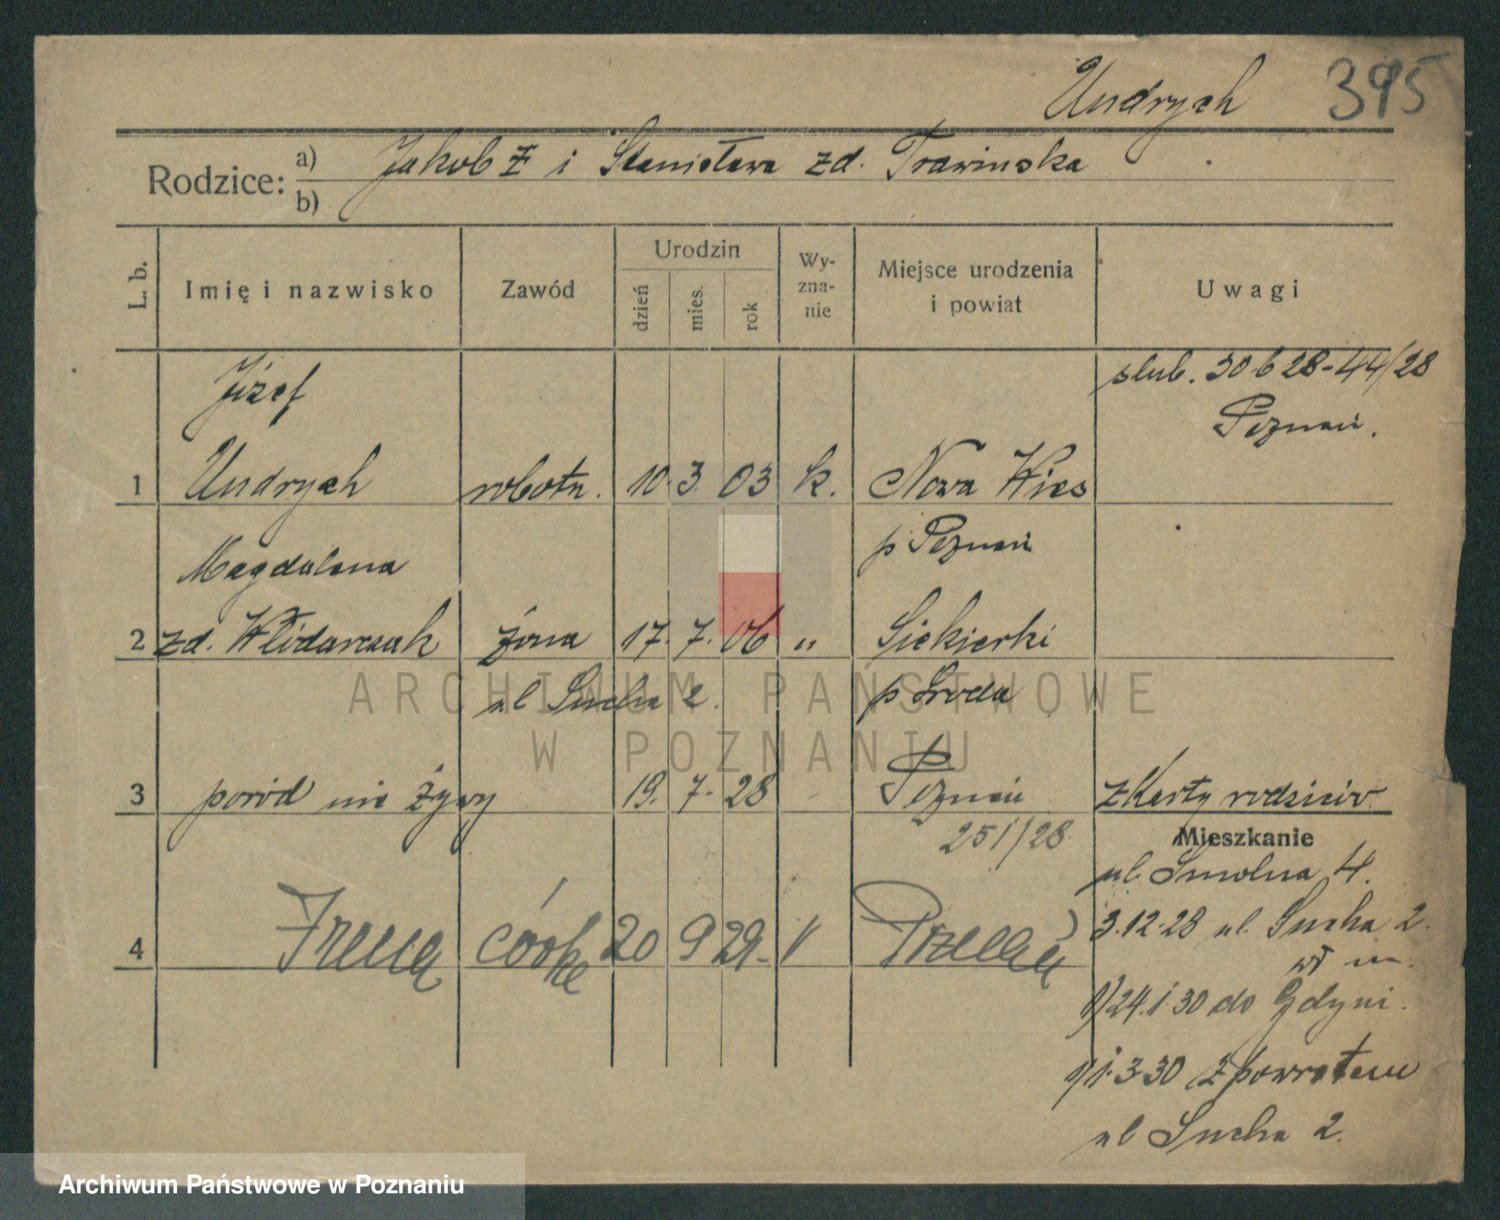 Undrych 395
Rodzice: a) Jakob Ƶ i Stanisława zd. Trawinska
b)
L. b. Imię i nazwisko Zawód Urodzin dzień mies. rok Wyznanie Miejsce urodzenia i powiat Uwagi
Józef ślub. 30 6 28 - 44/28
Poznań.
1 Undrych robotn. 10. 3. 03 k. Nowa Wies
Magdalena p Poznań
2 zd. Włodarczak żona 17. 7. 06 " Siekierki
ul Sucha 2. p Środa
3 poród nie żywy 19. 7. 28 - Poznań z Karty rodziców
251/28
Mieszkanie
ul Smolna 4.
4 Irena córka 20 9 29. Poznań 3.12.28 ul. Sucha 2.
wł m.
1) 24.1 30 do Gdyni.
1) 1.3.30 z powrotem
ul Sucha 2.
ARCHIWUM PAŃSTWOWE
W POZNANIU
Archiwum Państwowe w Poznaniu